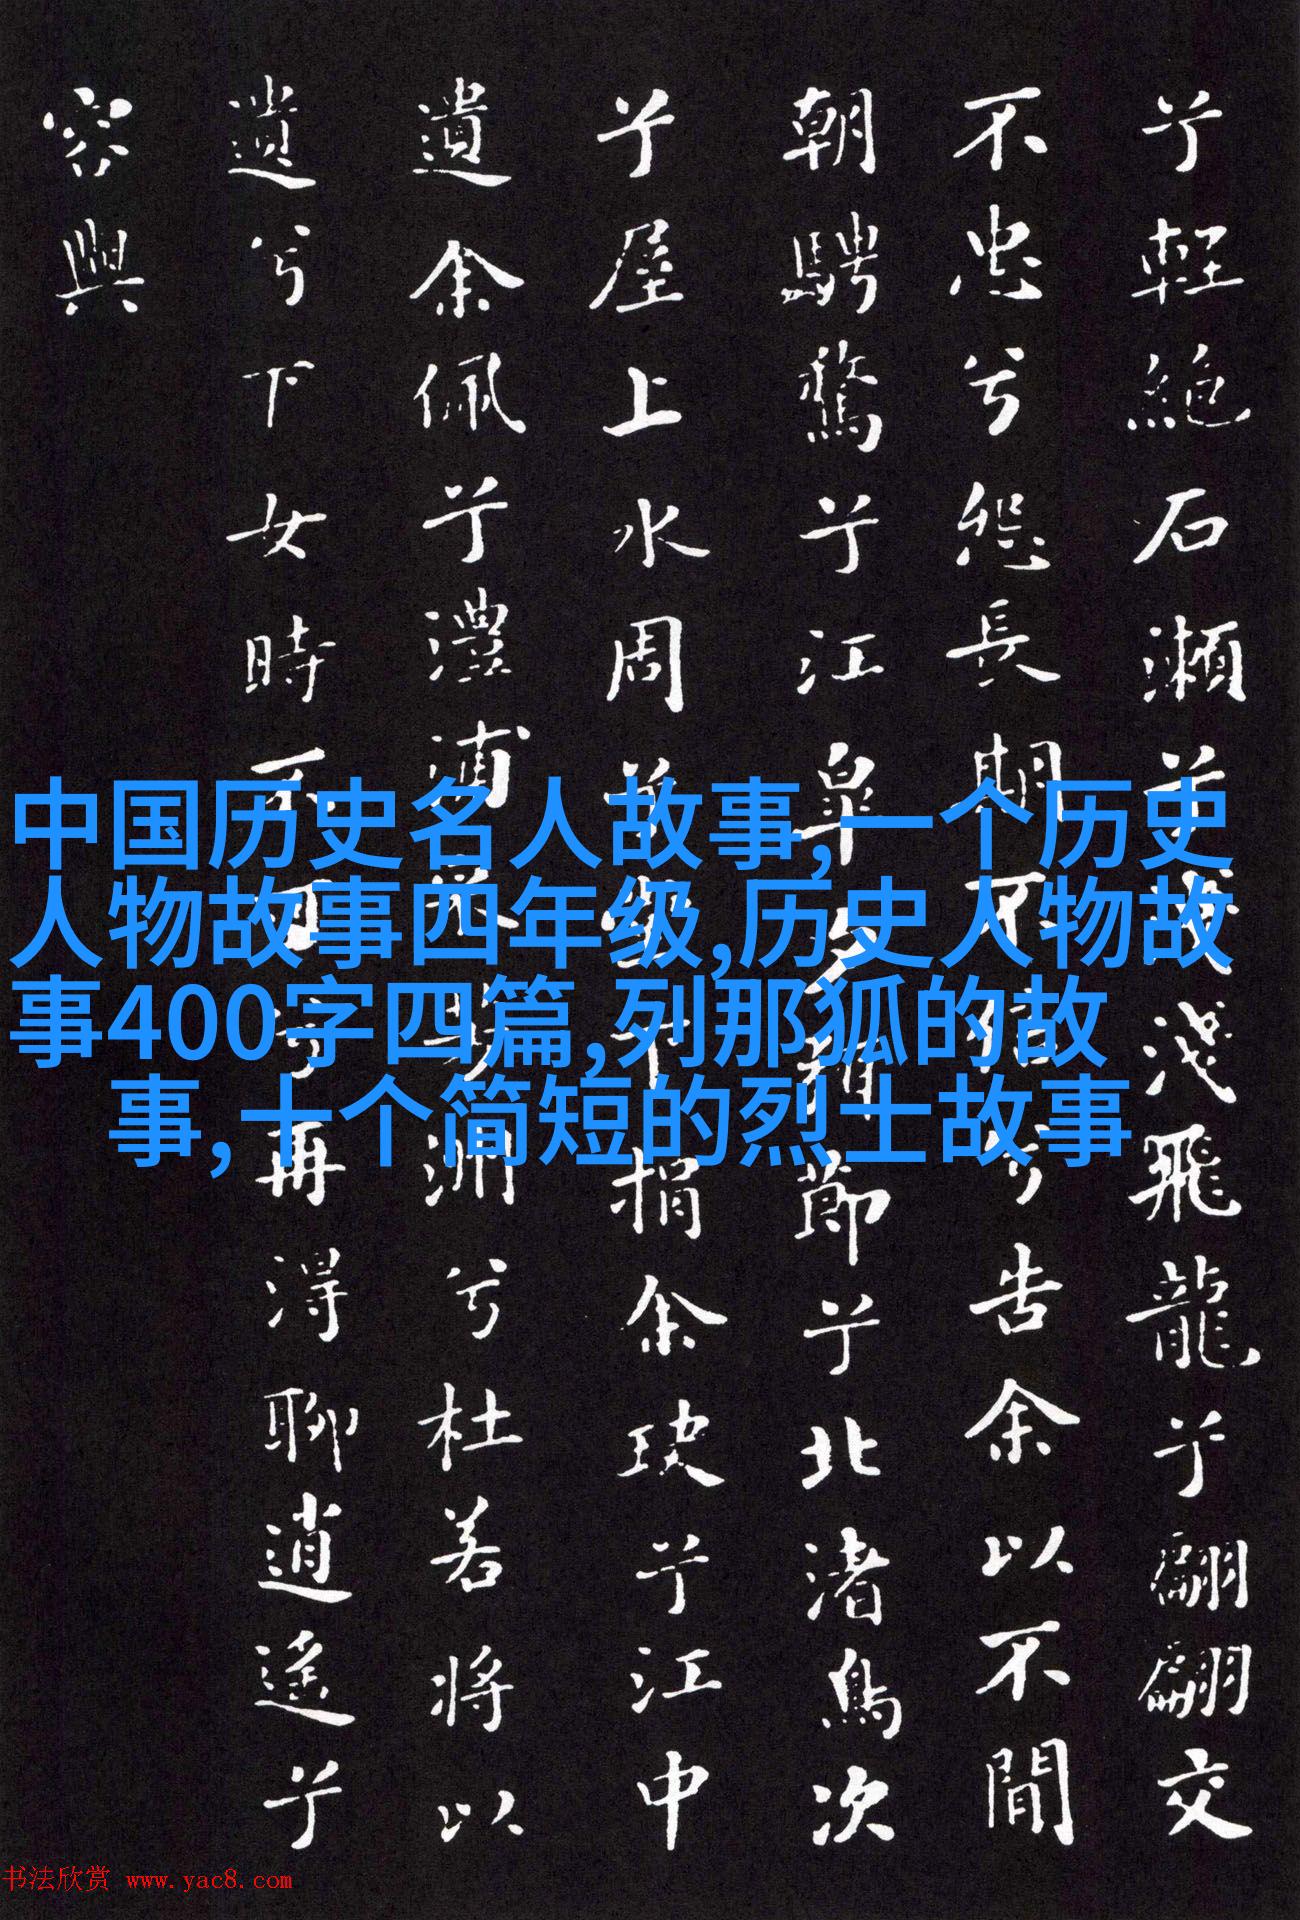 兮輕絕石瀨兮淺淺飛龍兮翩翩交
不忠兮怨長期不信兮告余以不間
朝騁騖兮江皋夕弭節兮北渚鳥次
兮屋上水周兮堂下捐余玦兮江中
遺余佩兮澧浦采芳洲兮杜若將以
遺兮下女時不可兮再得聊逍遙兮
容與
中国历史名人故事,一个历史
人物故事四年级,历史人物故
事400字四篇,列那狐的故
事,十个简短的烈士故事
书法欣赏 www.yac8.com